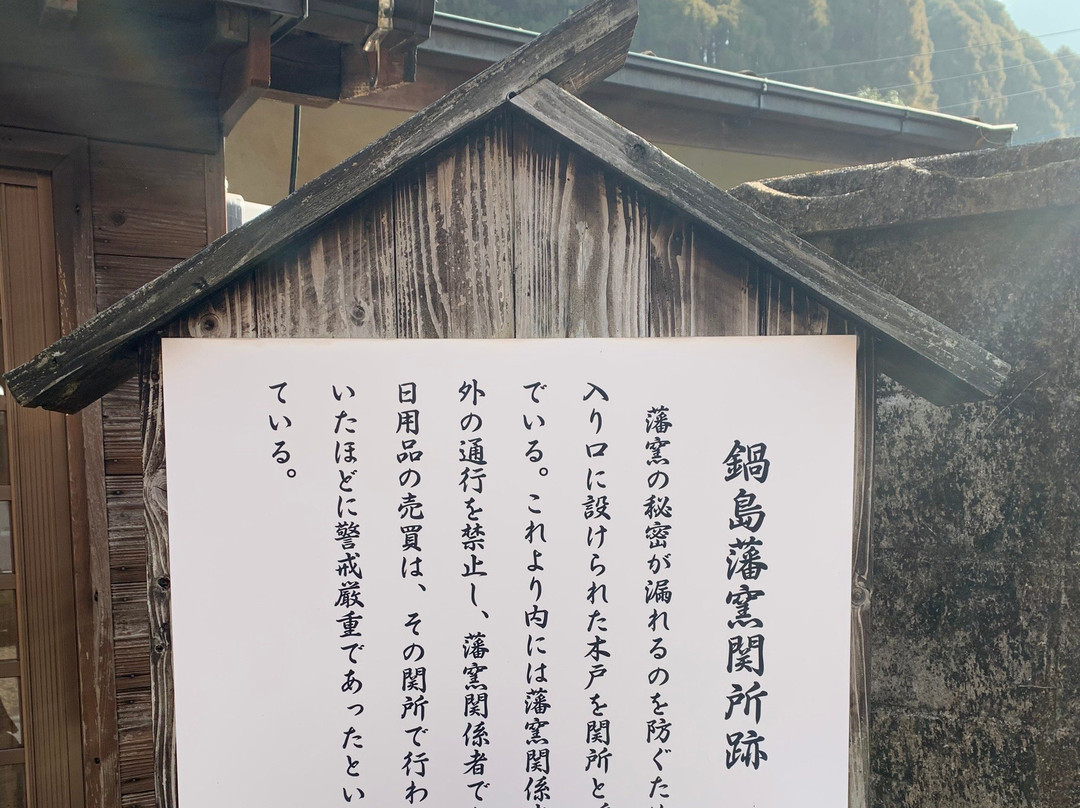 鍋島藩窯関所跡
藩窯の秘密が漏れるのを防ぐた
入り口に設けられた木戸を関所と
でいる。これより内には藩窯関係
外の通行を禁止し、藩窯関係者で
日用品の売買は、その関所で行わ
いたほどに警戒厳重であったとい
ている。